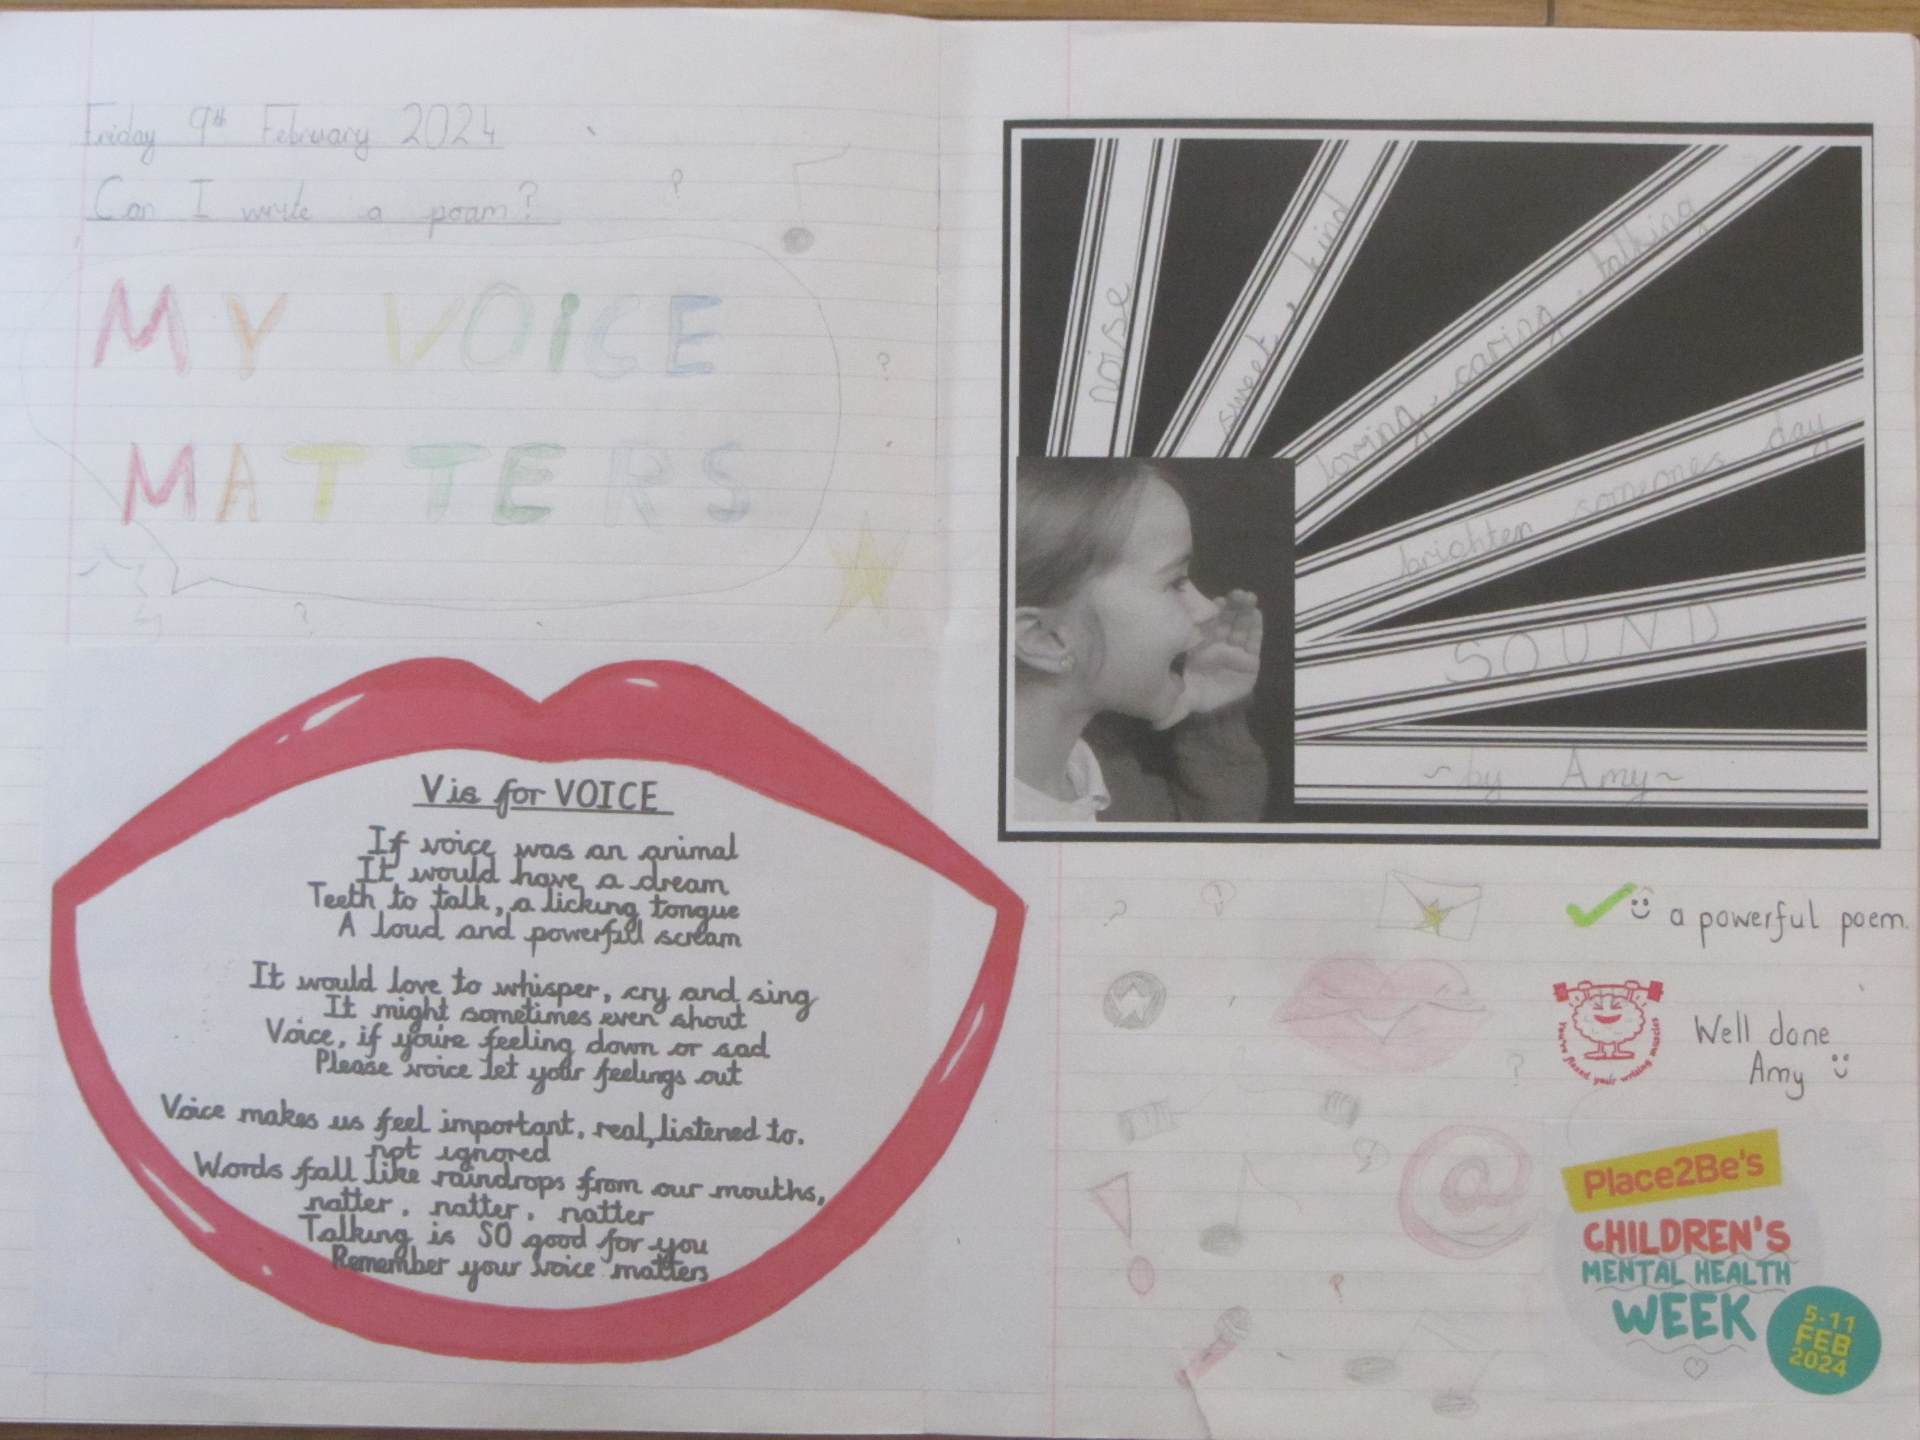 Friday 9th February 2024
Can I write a poam?
MY VOICE
MATTERS
V is for VOICE
If voice was an animal
It would have a dream
Teeth to talk, a licking tongue
A loud and powerful scream
It would love to whisper, cry and sing
It might sometimes even shout
Voice, if you're feeling down or sad
Please voice let your feelings out
Voice makes us feel important, real, listened to.
not ignored
Words fall like raindrops from our mouths,
natter, natter, natter
Talking is SO good for you
Remember your voice matters
noise
sweet, kind
loving, caring, talking
brighten someones day
SOUND
~by Amy~
a powerful poem.
You've flexed your writing muscles
Well done
Amy
@
Place2Be's
CHILDREN'S
MENTAL HEALTH
WEEK
5-11
FEB
2024